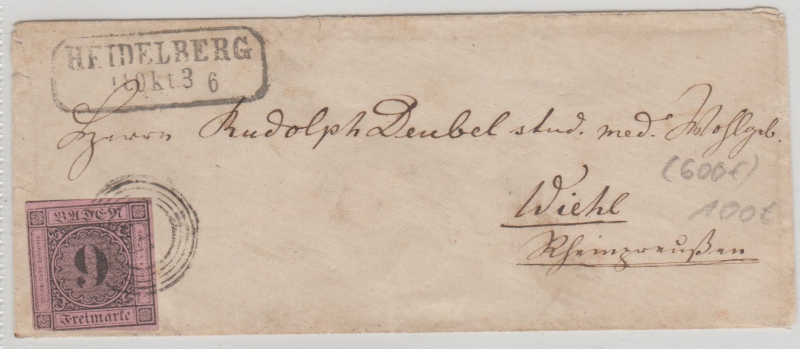 HEIDELBERG
11 Okt. 3 6
Herrn Rudolph Deubel stud. med. Wohlgeb.
(600€)
Wiehl
100€
Rheinpreußen
BADEN
9
Freimarke